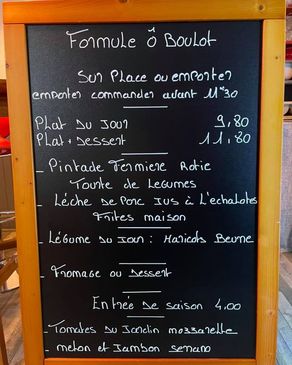 Formule ô Boulot
Sur Place ou emporter
emporter commander avant 11H30
Plat du Jour 9,80
Plat + Dessert 11,80
- Pintade Fermiere Rotie
Tourte de Legumes
- Lèche de Porc Jus à L'echalotes
Frites maison
- Légume du Jour : Haricots Beurre
- Fromage ou Dessert
Entrée de saison 4,00
- Tomates du Jardin mozzarelle
- melon et Jambon serrano